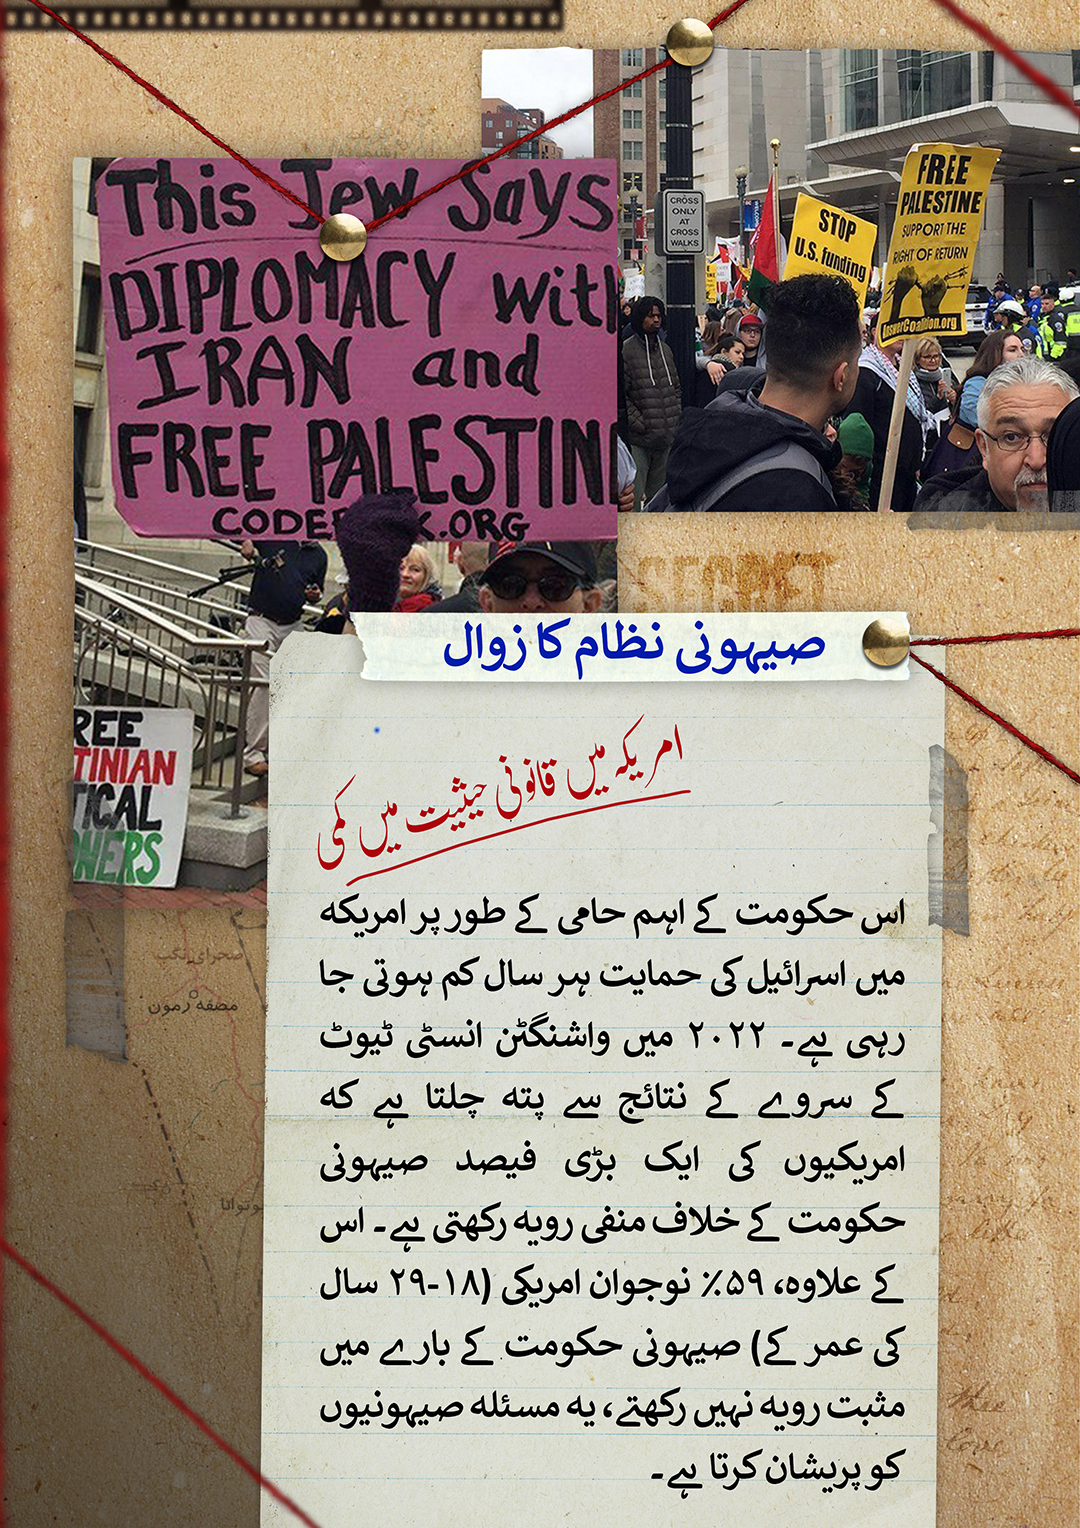 This Jew Says
DIPLOMACY with
IRAN and
FREE PALESTIN
CODE K.ORG
CROSS
ONLY
AT
CROSS
WALKS
STOP
U.S. funding
FREE
PALESTINE
SUPPORT THE
RIGHT OF RETURN
AnswerCoalition.org
SECRET
صیہونی نظام کا زوال
امریکہ میں قانونی حیثیت میں کمی
اس حکومت کے اہم حامی کے طور پر امریکہ
میں اسرائیل کی حمایت ہر سال کم ہوتی جا
رہی ہے۔ ۲۰۲۲ میں واشنگٹن انسٹی ٹیوٹ
کے سروے کے نتائج سے پتہ چلتا ہے کہ
امریکیوں کی ایک بڑی فیصد صیہونی
حکومت کے خلاف منفی رویہ رکھتی ہے۔ اس
کے علاوہ، ۵۹٪ نوجوان امریکی (۱۸-۲۹ سال
کی عمر کے) صیہونی حکومت کے بارے میں
مثبت رویہ نہیں رکھتے، یہ مسئلہ صیہونیوں
کو پریشان کرتا ہے۔
REE
TINIAN
TICAL
NERS
صحرای نگب
مصفه رمون
thee
love